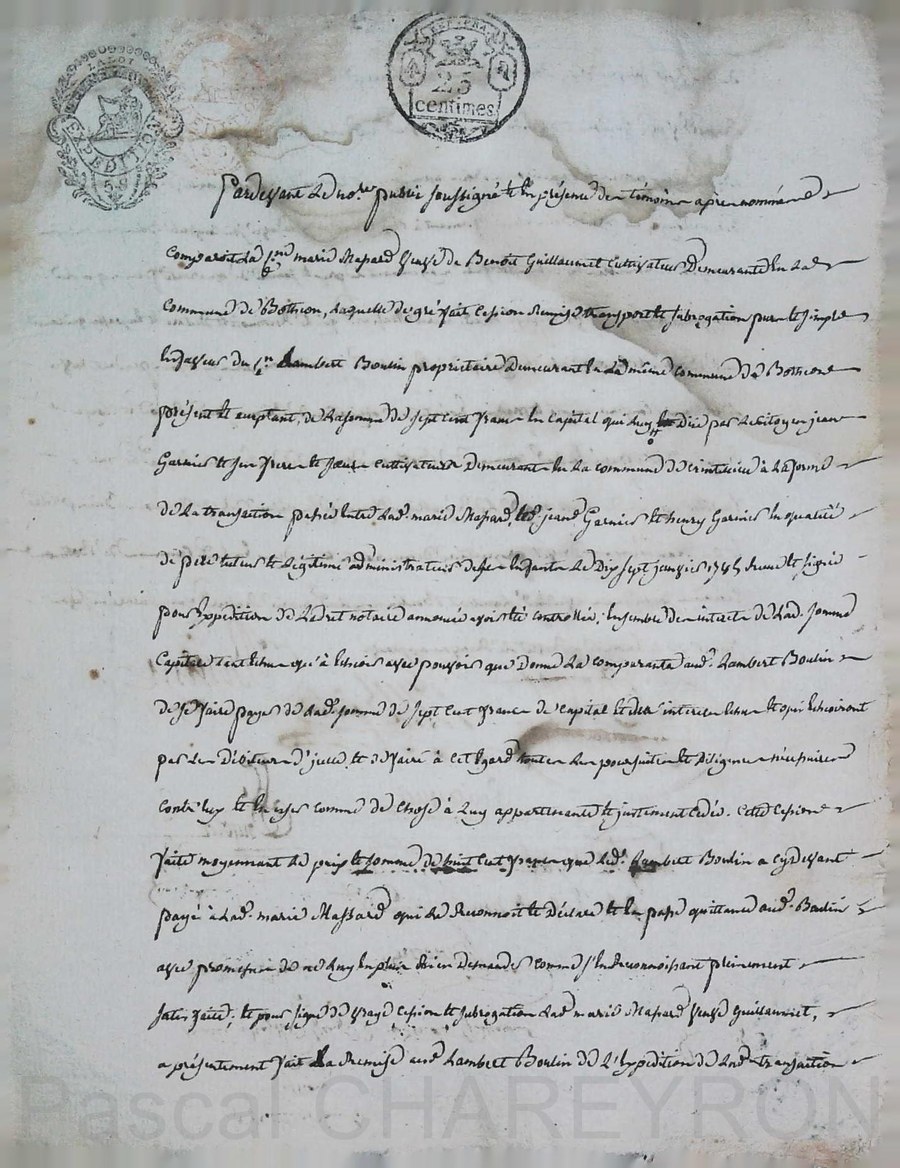 REP. FRA.
25
centimes
EXPEDITION
Pardevant le no.re public soussigné et en présence des témoins après nommés
comparoit la c.nne marie Massard veuve de Benoit Guillaumet cultivateur demeurante en la
commune de Botheon, laquelle de gré fait cession remise transport et subrogation pure et simple
en faveur du c.n Lambert Boulin proprietaire demeurant en la même commune de Botheon
présent et acceptant, de la somme de sept cent francs en capital qui luy est due par le citoyen jean
Garnier et ses frere et soeur cultivateurs demeurant en la commune de à la forme
de la transaction passée entre lad. marie Massard, led. jean Garnier et henry Garnier en qualité
de pere tuteur et légitime administrateur de ses enfants le dix sept janvier reçue et signée
pour expédition de ledret notaire annoncée avoir été controllée, ensemble des interets de lad. somme
capitale tant echus qu'à echoir avec pouvoir que donne la comparante aud. Lambert Boulin
de se faire payer de lad. somme de sept cent francs de capital et des interets echus et qui echoiront
par les débiteurs d'icelle et de faire à cet égard toutes les poursuites et diligences nécessaires
contre eux et en user comme de chose à luy appartenante et justement cédée. Cette cession
faite moyennant le prix et somme de huit cent francs que led. Lambert Boulin a cy devant
payé à lad. marie Massard qui le reconnoit et déclare et en passe quittance aud. Boulin
avec promesse de ne luy en plus rien demander comme s'en reconnoissant pleinement
satisfaite, et pour signe de vraye cession et subrogation lad. marie Massard veuve Guillaumet,
a présentement fait la remise aud. Lambert Boulin de l'expédition de lad. transaction
Pascal CHAREYRON